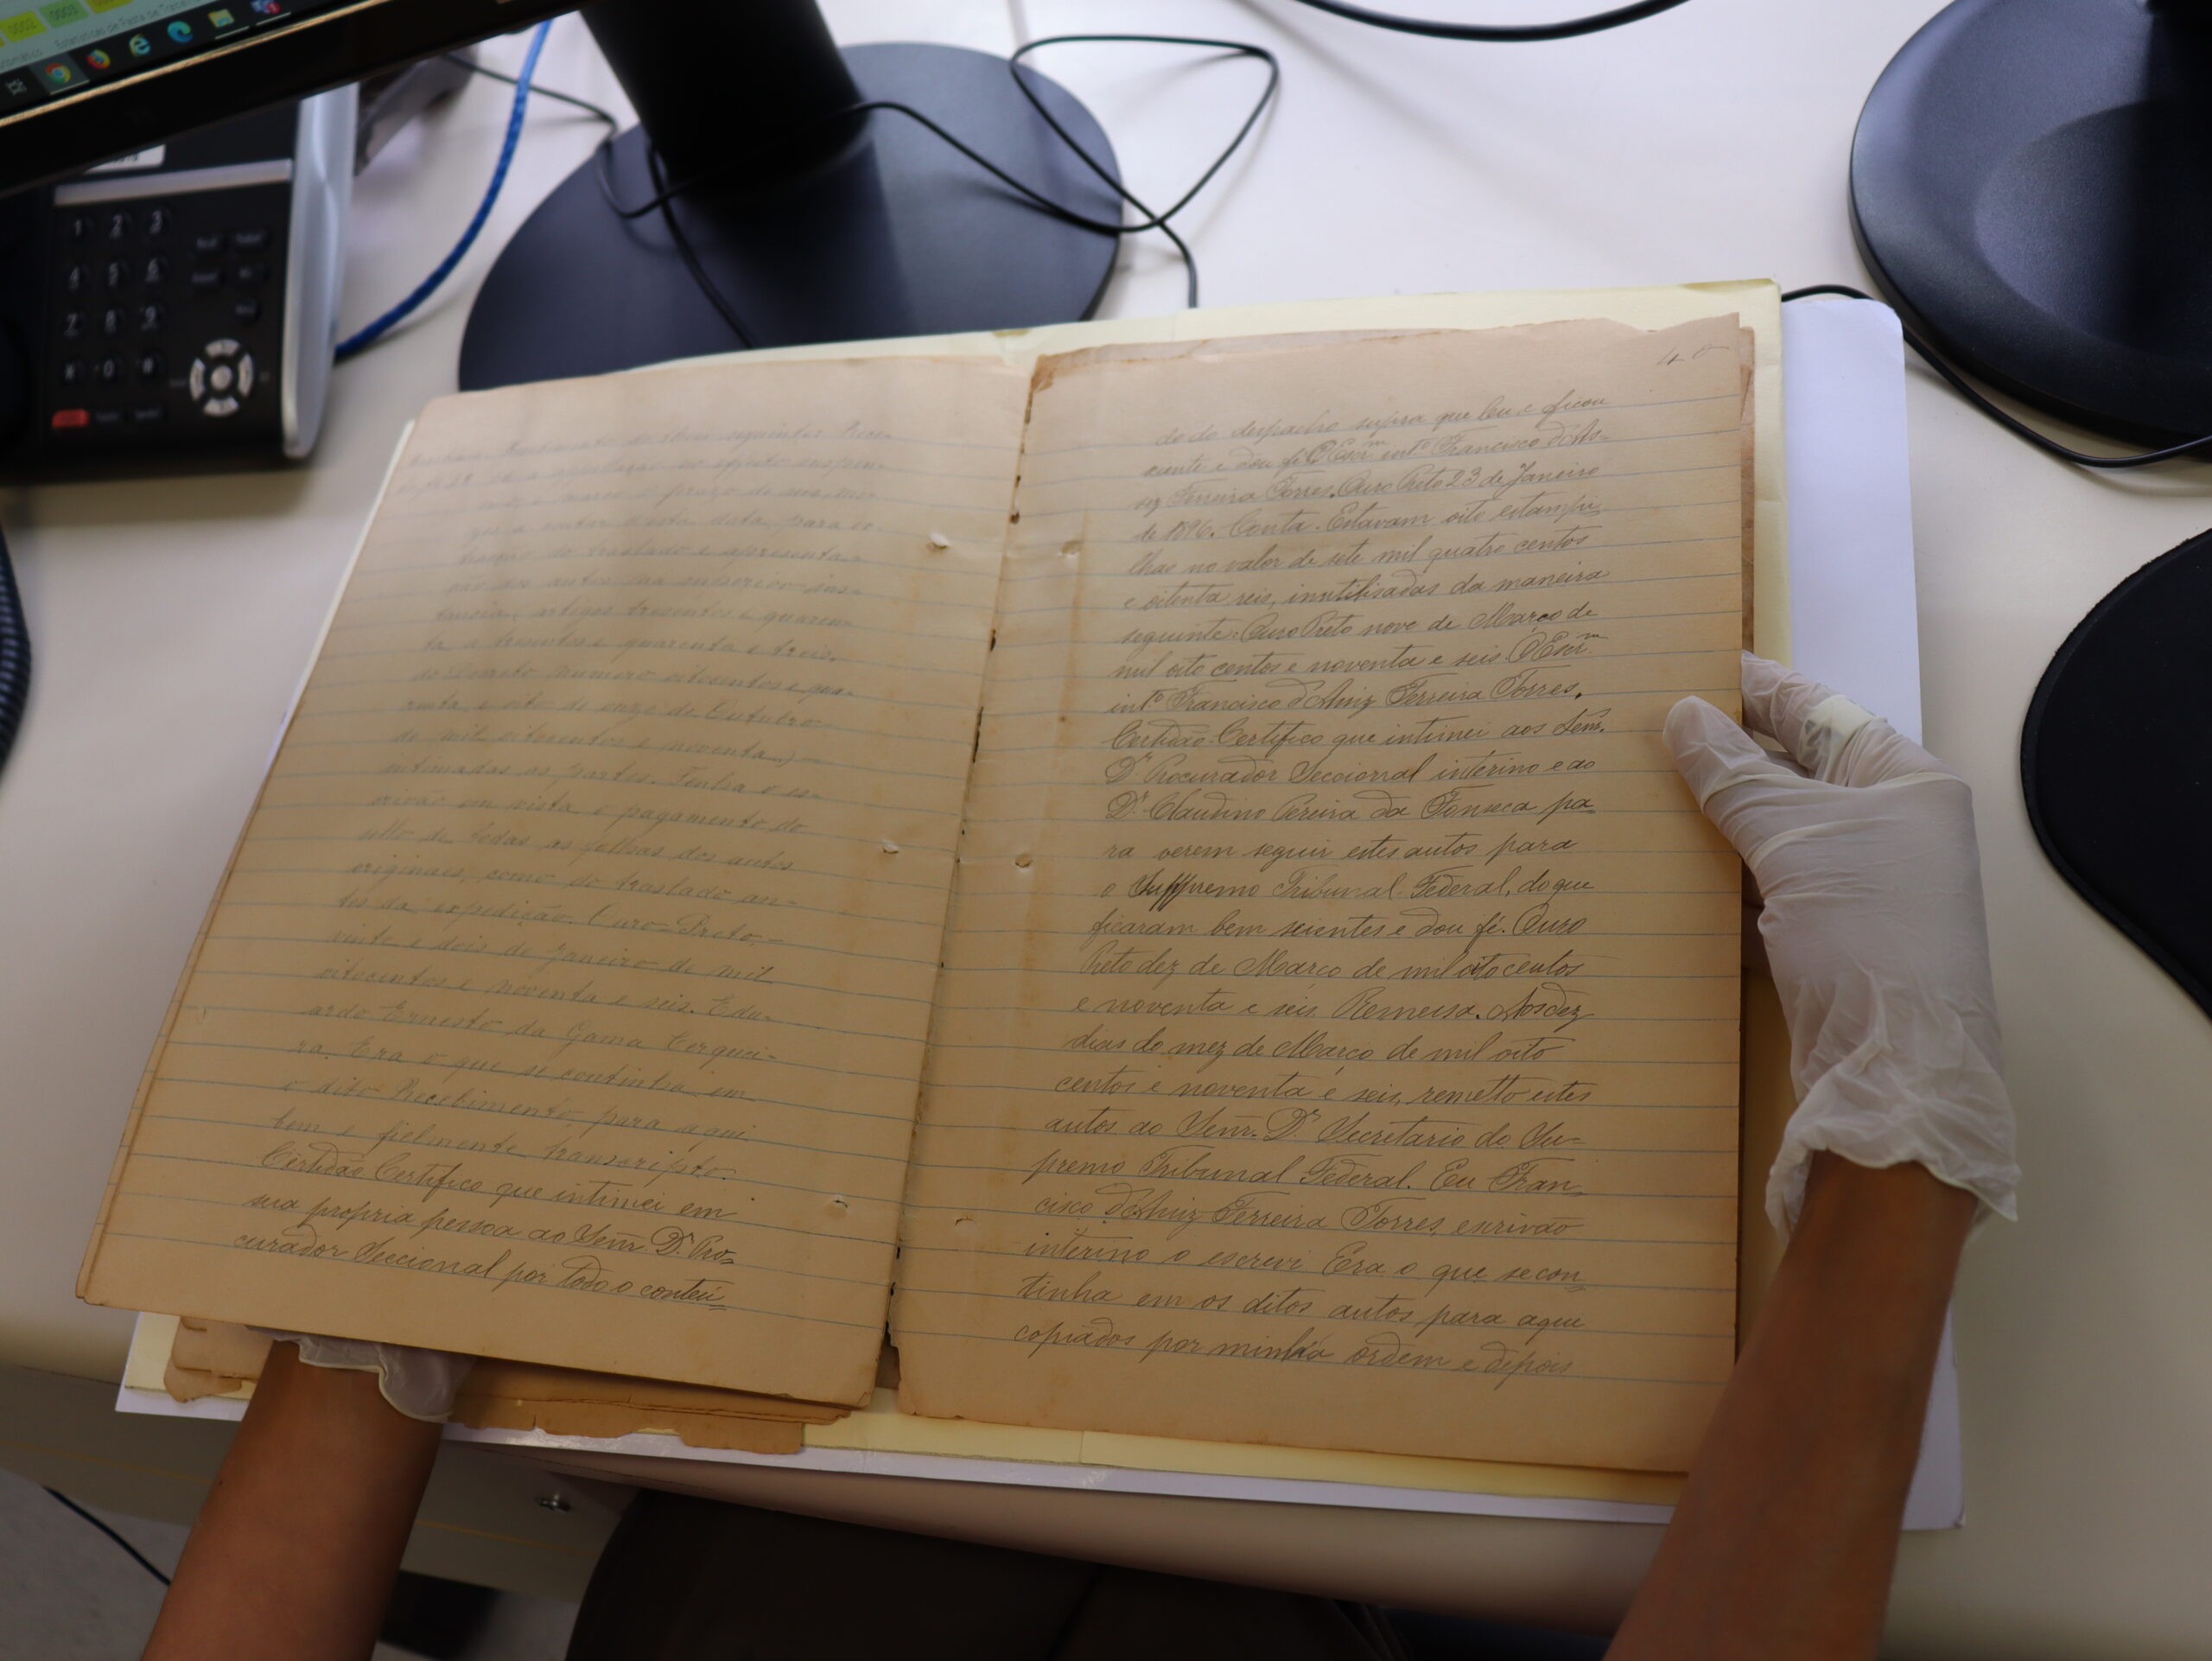 0002 0003
1 2 3
4 5 6
7 8 9
* 0 #
Recebimento seguintes
se a appellação no effeito suspen-
e marco o prazo de seis me-
zes a contar desta data, para ex-
tracção do traslado e apresenta-
ção dos autos na superior ins-
tancia, artigos tresentos e quaren-
ta e tresentos e quarenta e treis,
do Decreto numero oitocentos e qua-
renta e oito de onze de Outubro
de mil oitocentos e noventa.)
intimadas as partes. Tenha o es-
crivão em vista o pagamento do
sello de todas as folhas dos autos
originaes, como do traslado an-
tes da expedição. Ouro-Preto,
vinte e dois de Janeiro de mil
oitocentos e noventa e seis. Edu-
ardo Ernesto da Gama Cerquei-
ra. Era o que se continha em
o dito Recebimento, para aqui
bem e fielmente transcripto.
Certidão Certifico que intimei em
sua propria pessoa ao Senr. Dr. Pro=
curador Seccional por todo o conteu=
40
do do despacho supra que leu e ficou
sciente e dou fé. O Escrm. into. Francisco d'Assiz
Ferreira Torres. Ouro Preto 23 de Janeiro
de 1896. Conta. Estavam oito estampi-
lhas no valor de sete mil quatro centos
e oitenta reis, inutilisadas da maneira
seguinte: Ouro Preto nove de Março de
mil oito centos e noventa e seis. O Escrm.
into. Francisco d'Assiz Ferreira Torres.
Certidão-Certifico que intimei aos Senr.
Dr. Procurador Seccional interino e ao
Dr. Claudino Pereira da Fonseca pa=
ra verem seguir estes autos para
o Suppremo Tribunal Federal, do que
ficaram bem scientes e dou fé. Ouro
Preto dez de Março de mil oito centos
e noventa e seis. Remessa. Aos dez
dias do mez de Março de mil oito
centos e noventa e seis, remetto estes
autos ao Senr. Dr. Secretario do Su=
premo Tribunal Federal. Eu Fran=
cisco d'Assiz Ferreira Torres, escrivão
interino o escrevi Era o que se con=
tinha em os ditos autos para aqui
copiados por minha ordem e depois